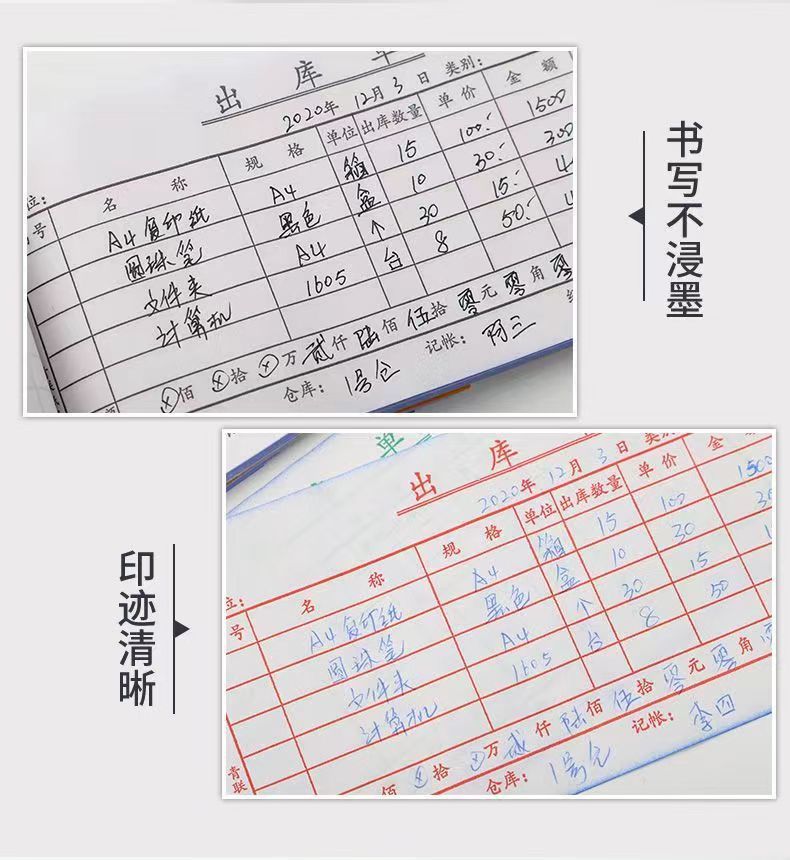 出 库 单
2020年 12月 3日 类别:
位:
号 名 称 规 格 单位 出库数量 单 价 金 额
A4复印纸 A4 箱 15 100.- 1500
圆珠笔 黑色 盒 10 30.- 300
文件夹 A4 个 30 15.-
计算机 1605 台 8 50.-
ⓧ佰 ⓧ拾 ⓧ万 贰仟 陆佰 伍拾 零元 零角 零
仓库: 1号仓 记帐: 阿三
书写不浸墨
单
出 库
2020年 12月 3日 类别
位:
号 名 称 规 格 单位 出库数量 单 价 金 额
A4复印纸 A4 箱 15 100 1500
圆珠笔 黑色 盒 10 30
文件夹 A4 个 30 15
计算机 1605 台 8 50
佰 ⓧ拾 ⓧ万 贰仟 陆佰 伍拾 零元 零角 零
仓库: 1号仓 记帐: 李四
联
印迹清晰